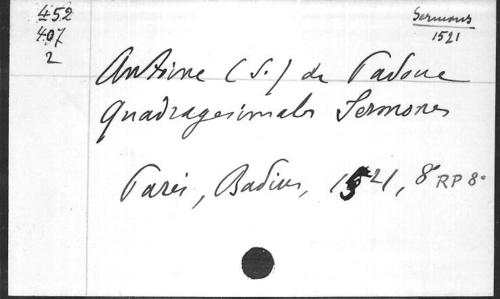 452
407
2
Sermons
1521
Antoine (S.) de Padoue
Quadragesimales Sermones
Paris, Badius, 1521, 8° RP 8°